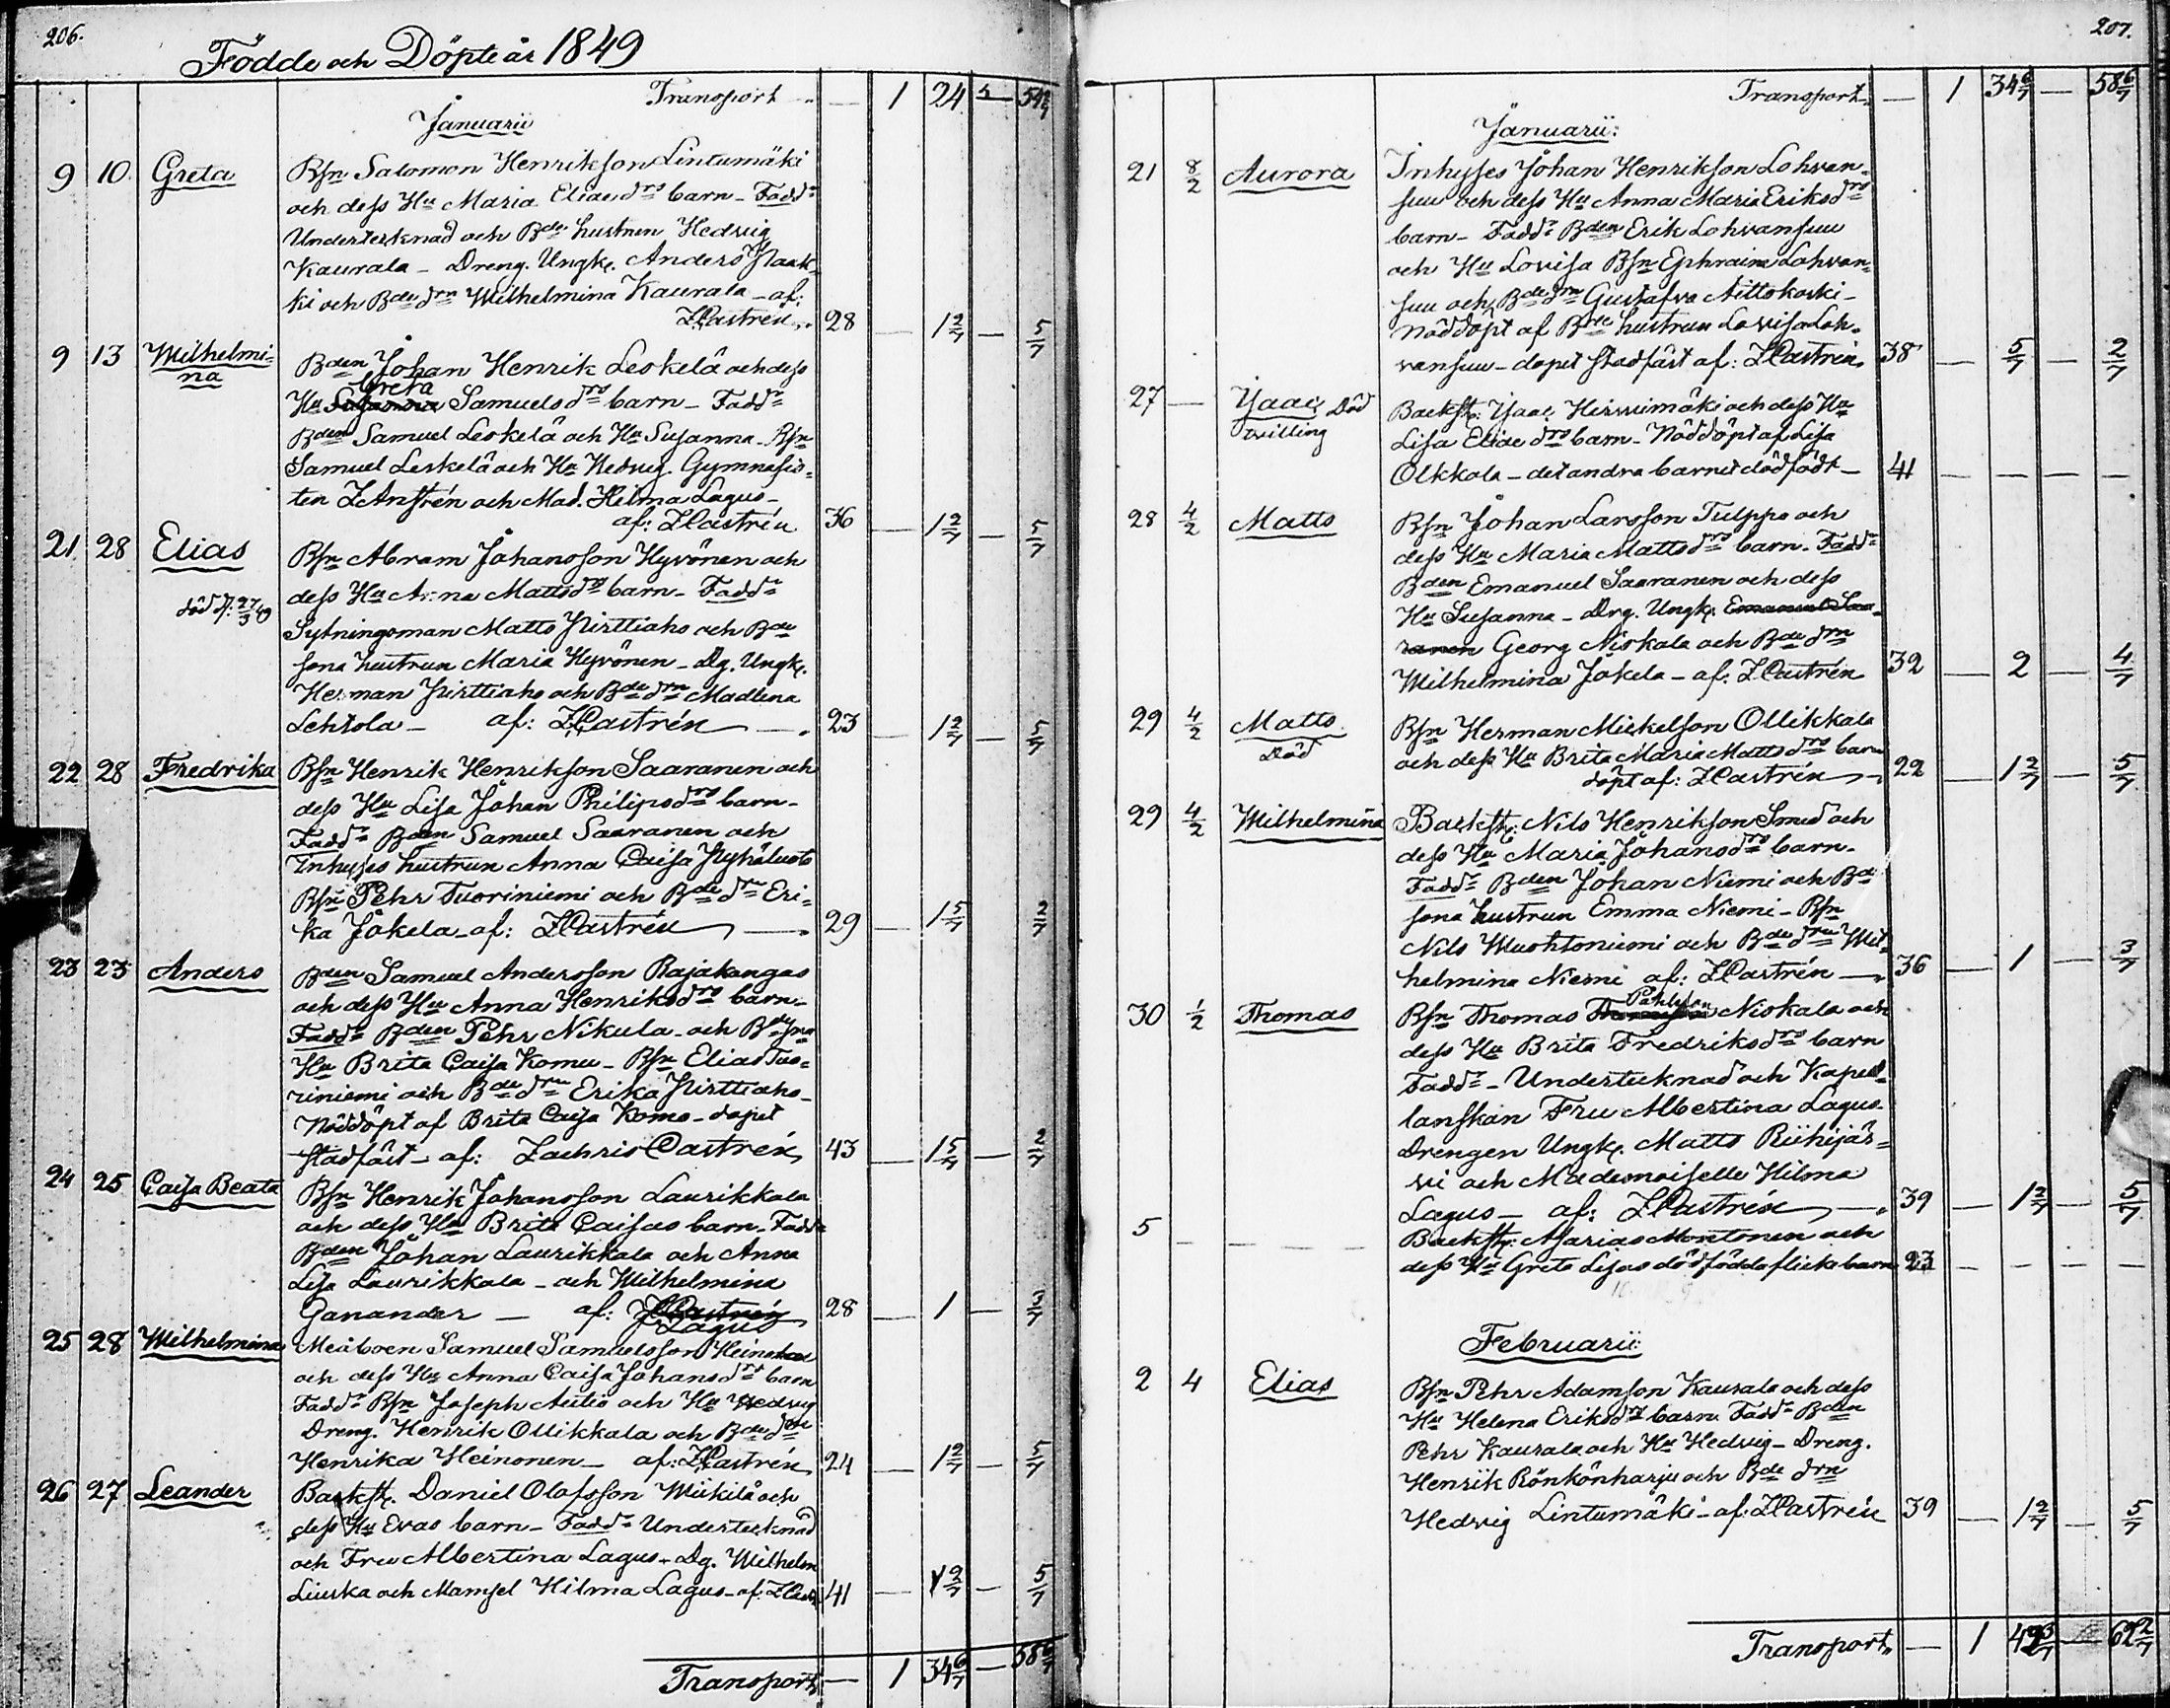 206.
Födde och Döpte år 1849
Transport — 1 24 5 — 54 2/7
Januarii
9 10 Greta Bsn Salomon Henrikson Lintumäki
och dess Hu Maria Eliæ drs barn - Fadd:
Undertecknad och Bde hustrun Hedvig
Kaurala - Dreng. Ungk. Anders
ki och Bde drn Wilhelmina Kaurala - af:
Z Castrén 28 — 1 2/7 — 5/7
9 13 Wilhelmi- Bden Johan Henrik Leskelä och dess
na Hu Greta Samuels drs barn - Fadd:
Bden Samuel Leskelä och Hu Susanna - Bsn
Samuel Leskelä och Hu Hedvig. Gymnasis-
ten och Mad. Hilma Lagus -
af: Z Castrén 36 — 1 2/7 — 5/7
21 28 Elias Bsn Abram Johansson Hyvönen och
död d: 27/3 49 dess Hu Anna Matts drs barn - Fadd:
Sytningsman Matts Pirttiaho och Bde
sona hustrun Maria Hyvönen - Dg. Ungk.
Herman Pirttiaho och Bde drn Madlena
Lehtola - af: Z Castrén — 23 — 1 2/7 — 5/7
22 28 Fredrika Bsn Henrik Henrikson Saaranen och
dess Hu Lisa Johan Philips drs barn -
Fadd: Bden Samuel Saaranen och
Inhyses hustrun Anna Caisa Pyhäluoto
Bsn Pehr Tuoriniemi och Bde drn Eri-
ka Jokela - af: Z Castrén — 29 — 1 5/7 2/7
23 23 Anders Bden Samuel Andersson Rajakangas
och dess Hu Anna Henriks drs barn -
Fadd: Bden Pehr Nikula - och Bde sna
Hu Brita Caisa Komu - Bsn Elias Tuo-
riniemi och Bde drn Erika Pirttiaho -
Nöddöpt af Brita Caisa Komo - dopet
stadfäst - af: Zachris Castrén 43 — 1 5/7 — 2/7
24 25 Caisa Beata Bsn Henrik Johansson Laurikkala
och dess Hu Brita Caisas barn - Fadd:
Bden Johan Laurikkala och Anna
Lisa Laurikkala - och Wilhelmina
Ganander — af: Z Castrén 28 — 1 — 3/7
Lagus
25 28 Wilhelmina Meåboen Samuel Samuelsson Heinonen
och dess Hu Anna Caisa Johans drs barn
Fadd: Bsn Joseph Autio och Hu Hedvig
Dreng. Henrik Ollikkala och Bde drn
Henrika Heinonen - af: Z Castrén 24 — 1 2/7 — 5/7
26 27 Leander Backst. Daniel Olofsson Mickilä och
dess Hu Evas barn - Fadd: Undertecknad
och Fru Albertina Lagus - Dg. Wilhelm
Liuska och Mamsel Hilma Lagus - af: Z Cast. 41 — 1 2/7 — 5/7
Transport — 1 34 6/7 — 58 6/7
207.
Transport — 1 34 6/7 — 58 6/7
Januarii:
21 8/2 Aurora Inhyses Johan Henrikson Lohvan-
suu och dess Hu Anna Maria Eriks drs
barn - Fadd: Bden Erik Lohvansuu
och Hu Lovisa Bsn Ephraim Lohvan-
suu och Bde drn Gustafva Aittokoski -
Nöddöpt af Bde hustrun Lovisa Loh-
vansuu - dopet stadfäst af: Z Castrén 38 — 5/7 — 2/7
27 — Isaac Död Backst: Isaac Hirvimäki och dess Hu
tvilling Lisa Eliæ drs barn - Nöddöpt af Lisa
Olkkola - det andra barnet dödfödt - 41 — — — —
28 4/2 Matts Bsn Johan Larsson Tulppo och
dess Hu Maria Matts drs barn - Fadd:
Bden Emanuel Saaranen och dess
Hu Susanna - Drg. Ungk. Emanuel Saa-
ranen Georg Niskala och Bde drn
Wilhelmina Jokela - af: Z Castrén 32 — 2 — 4/7
29 4/2 Matts Bsn Herman Mickelson Ollikkala
Död och dess Hu Brita Maria Matts drs barn
döpt af: Z Castrén — 22 — 1 2/7 — 5/7
29 4/2 Wilhelmina Backst: Nils Henrikson Smed och
dess Hu Maria Johans drs barn -
Fadd: Bden Johan Niemi och Bde
sona hustrun Emma Niemi - Bsn
Nils Muohtoniemi och Bde drn Wil-
helmina Niemi af: Z Castrén — 36 — 1 — 3/7
30 1/2 Thomas Bsn Thomas Påhlson Niskala och
dess Hu Brita Fredriks drs barn
Fadd: - Undertecknad och Kapel-
lanskan Fru Albertina Lagus -
Drengen Ungk. Matts Riihijär-
vi och Mademoiselle Hilma
Lagus - af: Z Castrén — 39 — 1 2/7 — 5/7
5 — — — Backst: Asarias Montonen och
dess Hu Greta Lisas dödfödda flickebarn 23 — — — —
Februarii:
2 4 Elias Bsn Pehr Adamson Kaurala och dess
Hu Helena Eriks drs barn. Fadd: Bden
Pehr Kaurala och Hu Hedvig - Dreng.
Henrik Rönkönharju och Bde drn
Hedvig Lintumäki - af: Z Castrén 39 — 1 2/7 — 5/7
Transport — 1 — 62 2/7